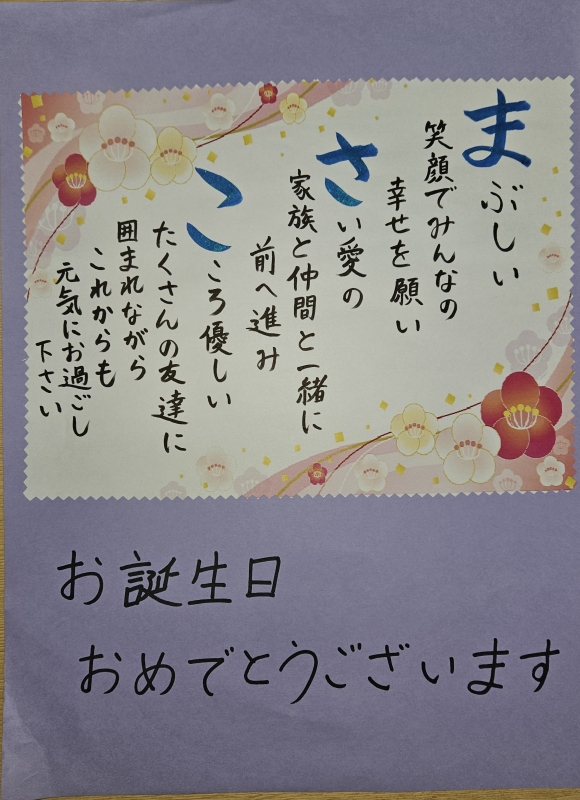 まぶしい
笑顔でみんなの
幸せを願い
さい愛の
家族と仲間と一緒に
前へ進み
こころ優しい
たくさんの友達に
囲まれながら
これからも
元気にお過ごし
下さい
お誕生日
おめでとうございます